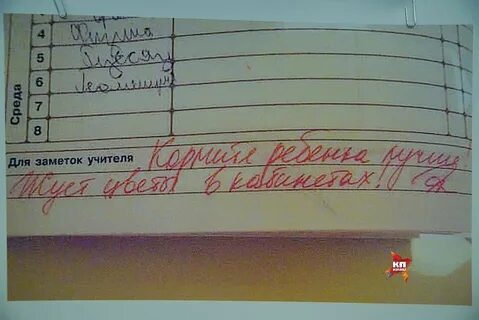 Среда
4 Физика
5
6 Геометрия
7
8
Для заметок учителя Кормите ребенка лучше!
Жует цветы в кабинетах!
КП